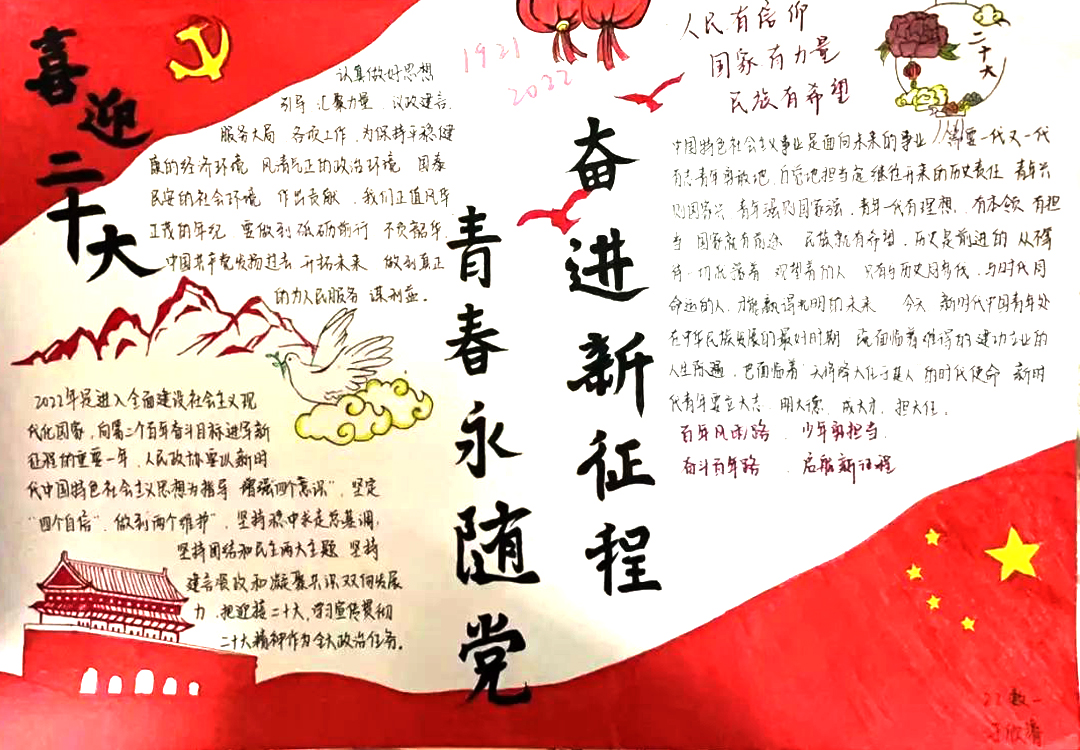 喜迎二十大
认真做好思想
引导 汇聚力量、议政建言、
服务大局 各项工作,为保持平稳健
康的经济环境 风清气正的政治环境 国泰
民安的社会环境 作出贡献、我们正值风华
正茂的年纪 要做到砥砺前行 不负韶华、
中国共产党发扬过去 开拓未来 做到真正
的为人民服务 谋利益。
1921
2022
人民有信仰
国家有力量
民族有希望
二十大
中国特色社会主义事业是面向未来的事业 需要一代又一代
有志青年勇敢地、自觉地担当定继往开来的历史责任 青年兴
则国家兴 青年强则国家强,青年一代有理想、有本领 有担
当 国家就有前途 民族就有希望,历史是前进的 从不等
待一切 观望着的人 只有与历史同步伐、与时代同
命运的人,才能赢得光明的未来 今天 新时代中国青年处
在中华民族发展的最好时期 既面临着难得的建功立业的
人生际遇,也面临着"天将降大任于斯人"的时代使命 新时
代青年要立大志、明大德、成大才、担大任。
百年风雨路、少年勇担当,
奋斗百年路、启航新征程
青春永随党
奋进新征程
2022年是进入全面建设社会主义现
代化国家,向第二个百年奋斗目标进军新
征程的重要一年,人民政协要以新时
代中国特色社会主义思想为指导 增强"四个意识",坚定
"四个自信"、做到"两个维护",坚持稳中求进总基调,
坚持团结和民主两大主题 坚持
建言资政和凝聚共识双向发展
力,把迎接二十大,学习宣传贯彻
二十大精神作为全大政治任务。
22数一